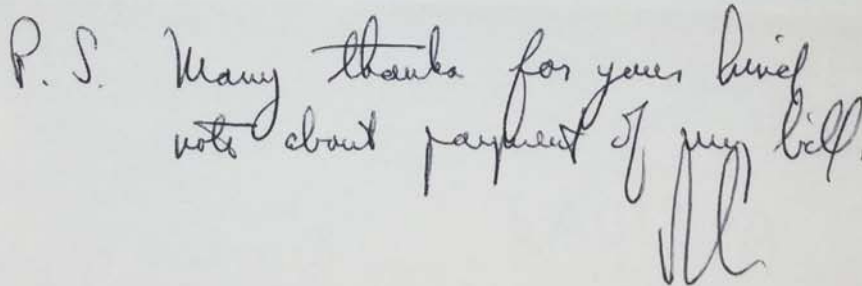 P. S. Many thanks for your kind
note about payment of my bill.